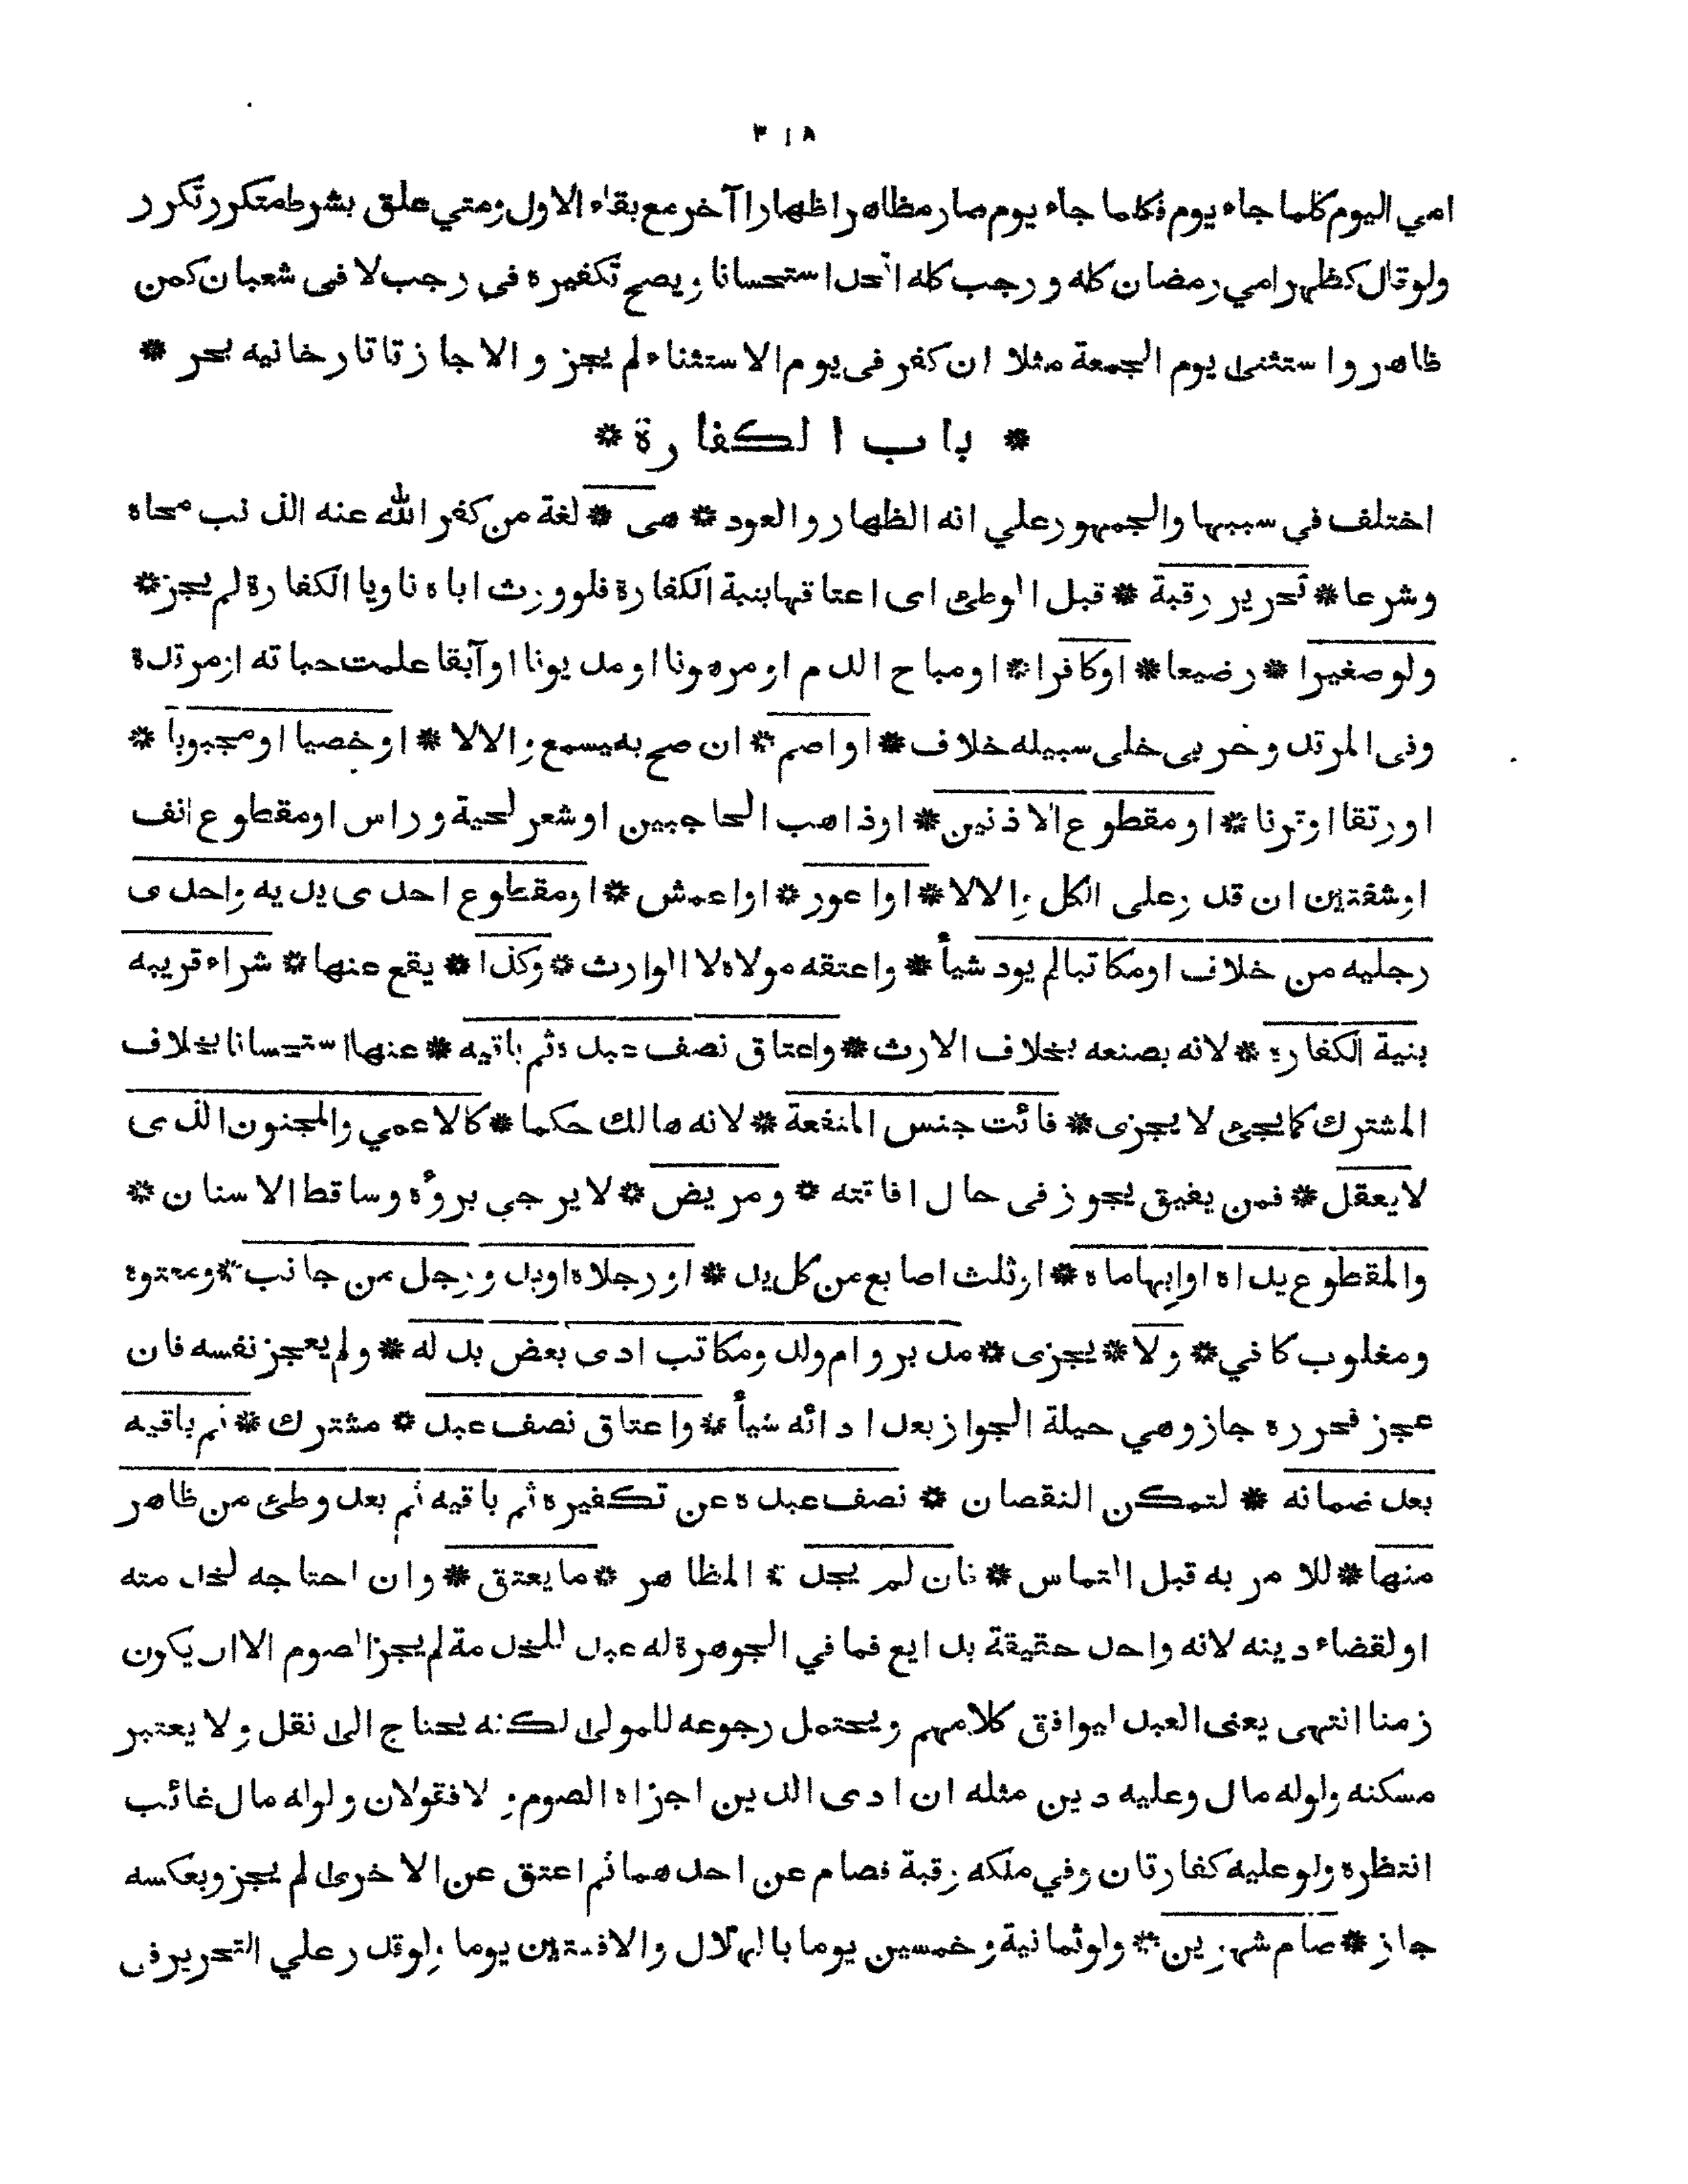 ٣١٨
امي اليوم كلما جاء يوم فكلما جاء يوم صار مظاهرا ظهارا آخر مع بقاء الاول ومتي علق بشرط متكرر تكرر
ولو قال كظهر امي رمضان كله و رجب كله اتحد استحسانا و يصح تكفيره في رجب لا في شعبان كمن
ظاهر و استثنى يوم الجمعة مثلا ان كفر فى يوم الاستثناء لم يجز و الا جاز تاتارخانيه بحر *
* باب الكفارة *
اختلف في سببها والجمهور علي انه الظهار و العود * هى * لغة من كفر الله عنه الذنب محاه
وشرعا * تحرير رقبة * قبل الوطئ اى اعتاقها بنية الكفارة فلو ورث اباه ناويا الكفارة لم يجز *
ولو صغيرا * رضيعا * اوكافرا * او مباح الدم او مرهونا او مديونا او آبقا علمت حياته او مرتدة
وفى المرتد و حربى خلى سبيله خلاف * او اصم * ان صح به يسمع و الا لا * او خصيا او مجبوبا *
او رتقا او قرنا * او مقطوع الاذنين * او ذاهب الحاجبين او شعر لحية و راس او مقطوع انف
او شفتين ان قدر على الاكل و الا لا * او اعور * او اعمش * او مقطوع احدى يديه واحدى
رجليه من خلاف او مكاتبا لم يود شيأ * و اعتقه مولاه لا الوارث * وكذا * يقع عنها * شراء قريبه
بنية الكفارة * لانه بصنعه بخلاف الارث * واعتاق نصف عبده ثم باقيه * عنها استحسانا بخلاف
المشترك كما يجئ لا يجزى * فائت جنس المنفعة * لانه هالك حكما * كالاعمي والمجنون الذى
لا يعقل * فمن يفيق يجوز فى حال افاقته * و مريض * لا يرجي بروٴه و ساقط الاسنان *
والمقطوع يداه او ابهاماه * او ثلث اصابع من كل يد * او رجلاه او يد و رجل من جانب * و معتوه
و مغلوب كافي * و لا * يجزى * مدبر و ام ولد و مكاتب ادى بعض بدله * و لم يعجز نفسه فان
عجز فحرره جاز وهي حيلة الجواز بعد ادائه شيأ * و اعتاق نصف عبد * مشترك * ثم باقيه
بعد ضمانه * لتمكن النقصان * نصف عبده عن تكفيره ثم باقيه ثم بعد وطئ من ظاهر
منها * للامر به قبل التماس * فان لم يجد * المظاهر * ما يعتق * وان احتاجه لخدمته
او لقضاء دينه لانه واحد حقيقة بدايع فما في الجوهرة له عبد للخدمة لم يجز الصوم الا ان يكون
زمنا انتهى يعنى العبد ليوافق كلامهم و يحتمل رجوعه للمولى لكنه يحتاج الى نقل و لا يعتبر
مسكنه ولو له مال وعليه دين مثله ان ادى الدين اجزاه الصوم و لا فقولان ولو له مال غائب
انتظره ولو عليه كفارتان وفي ملكه رقبة فصام عن احدهما ثم اعتق عن الاخرى لم يجز وبعكسه
جاز * صام شهرين * ولو ثمانية و خمسين يوما بالهلال والا فستين يوما ولو قدر علي التحرير فى